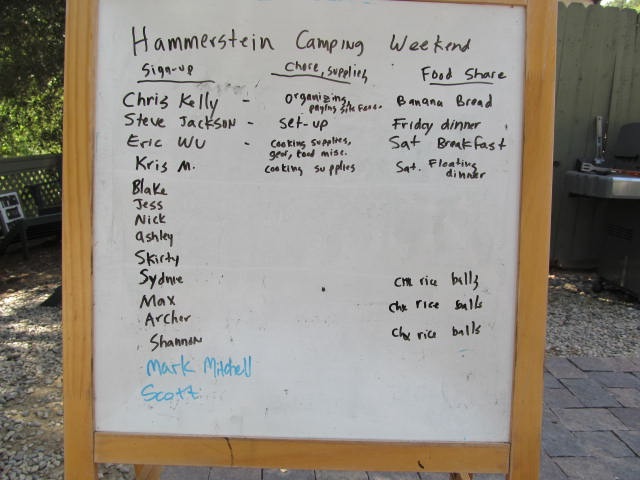 Hammerstein Camping Weekend
Sign-up Chore, supplies Food Share
Chris Kelly - organizing, paying site fees. Banana Bread
Steve Jackson - set-up Friday dinner
Eric Wu - cooking supplies, gear, food misc. Sat Breakfast
Kris M. cooking supplies Sat. Floating dinner
Blake
Jess
Nick
Ashley
Skirty
Sydnie chx rice balls
Max chx rice balls
Archer chx rice balls
Shannon
Mark Mitchell
Scott